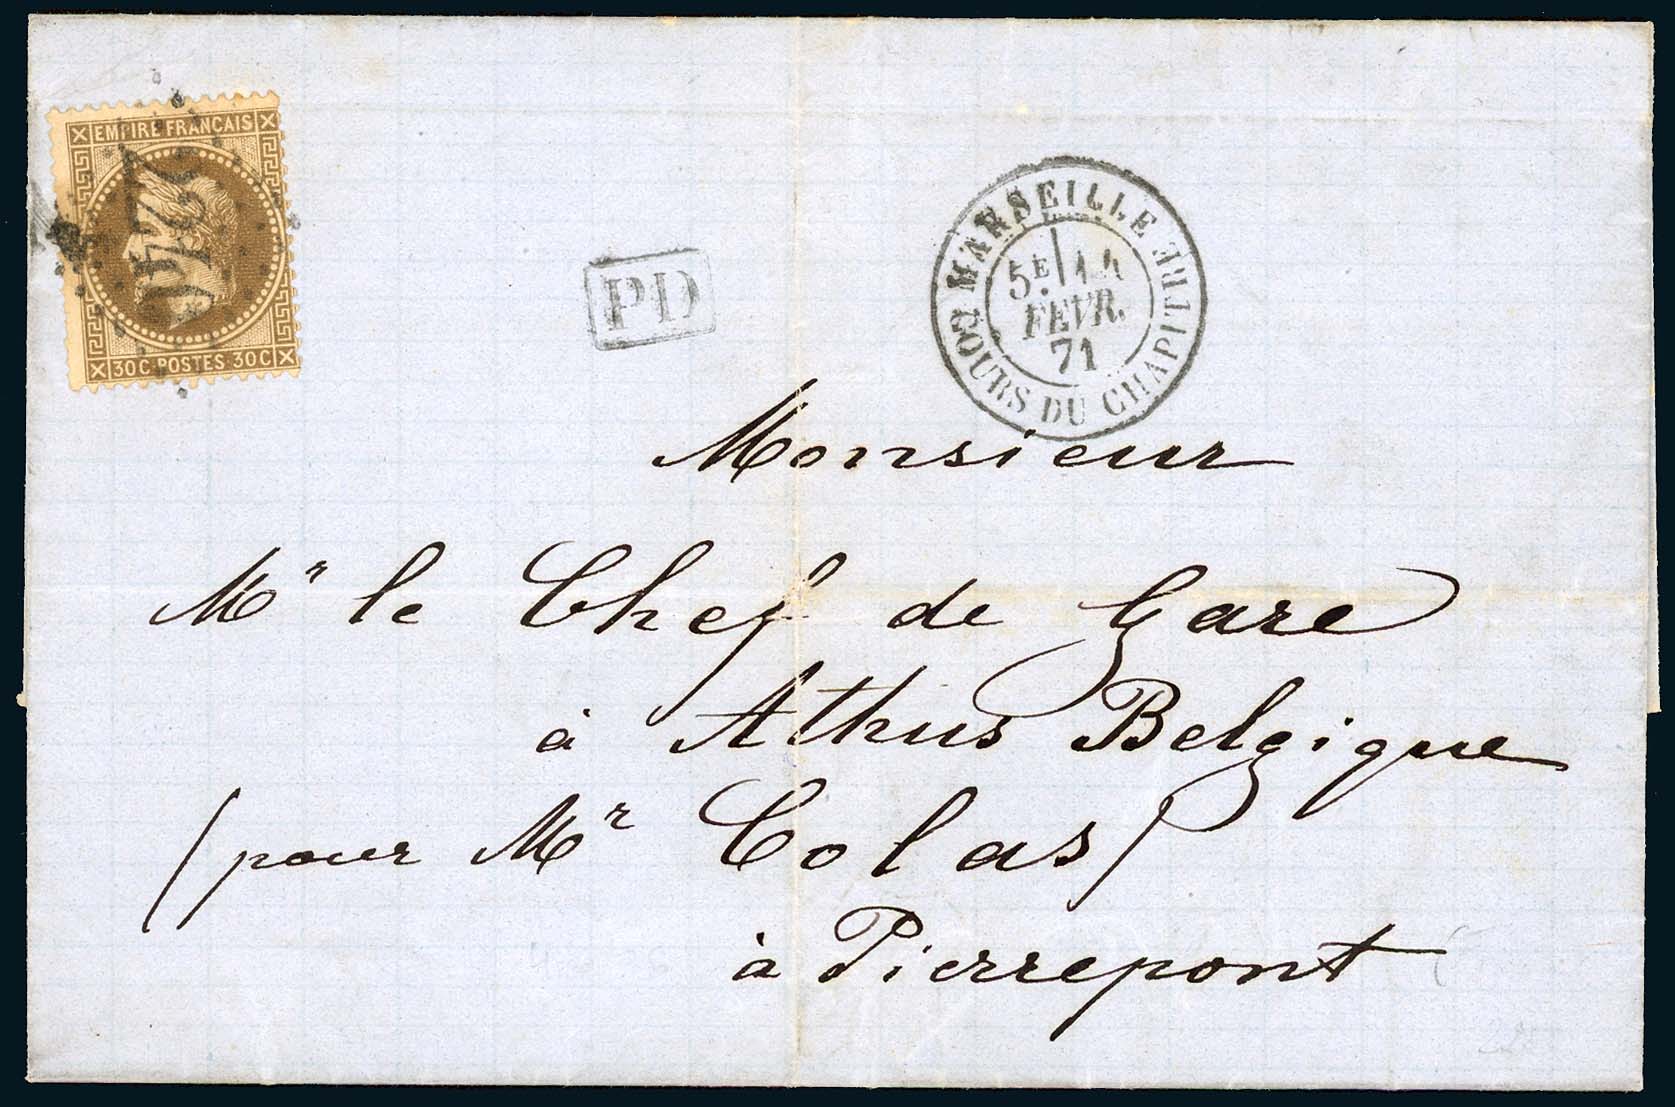 EMPIRE FRANCAIS
2240
30C POSTES 30C
PD
MARSEILLE
5E 14
FEVR.
71
COURS DU CHAPITRE
Monsieur
Mr le Chef de Gare
à Athus Belgique
(pour Mr Colas)
à Pierrepont